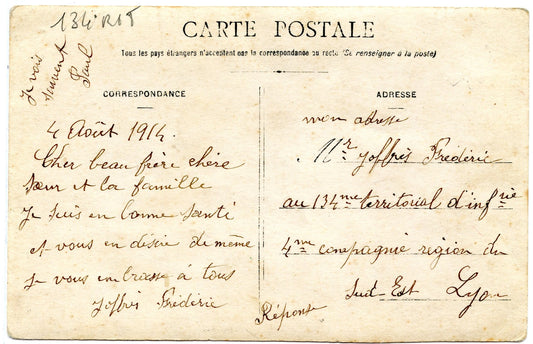 134 RIT
Je vois
rarement
Paul
CARTE POSTALE
Tous les pays étrangers n'acceptent pas la correspondance au recto (Se renseigner à la poste)
CORRESPONDANCE
4 Août 1914.
Cher beau frère chère
sœur et la famille
Je suis en bonne santé
et vous en désire de même
Je vous embrasse à tous
Joffrès Frédéric
Réponse
ADRESSE
mon adresse
Mr Joffrès Frédéric
au 134me territorial d'infrie
4me compagnie région du
Sud-Est Lyon